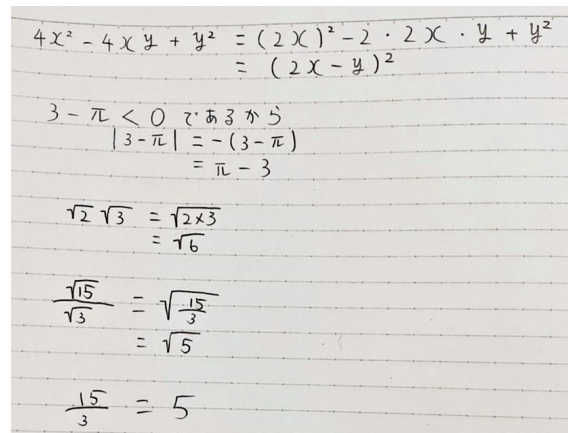 4x² - 4xy + y² = (2x)² - 2・2x・y + y²
= (2x - y)²
3 - π < 0 であるから
|3 - π| = -(3 - π)
= π - 3
√2 √3 = √(2×3)
= √6
√15/√3 = √(15/3)
= √5
15/3 = 5